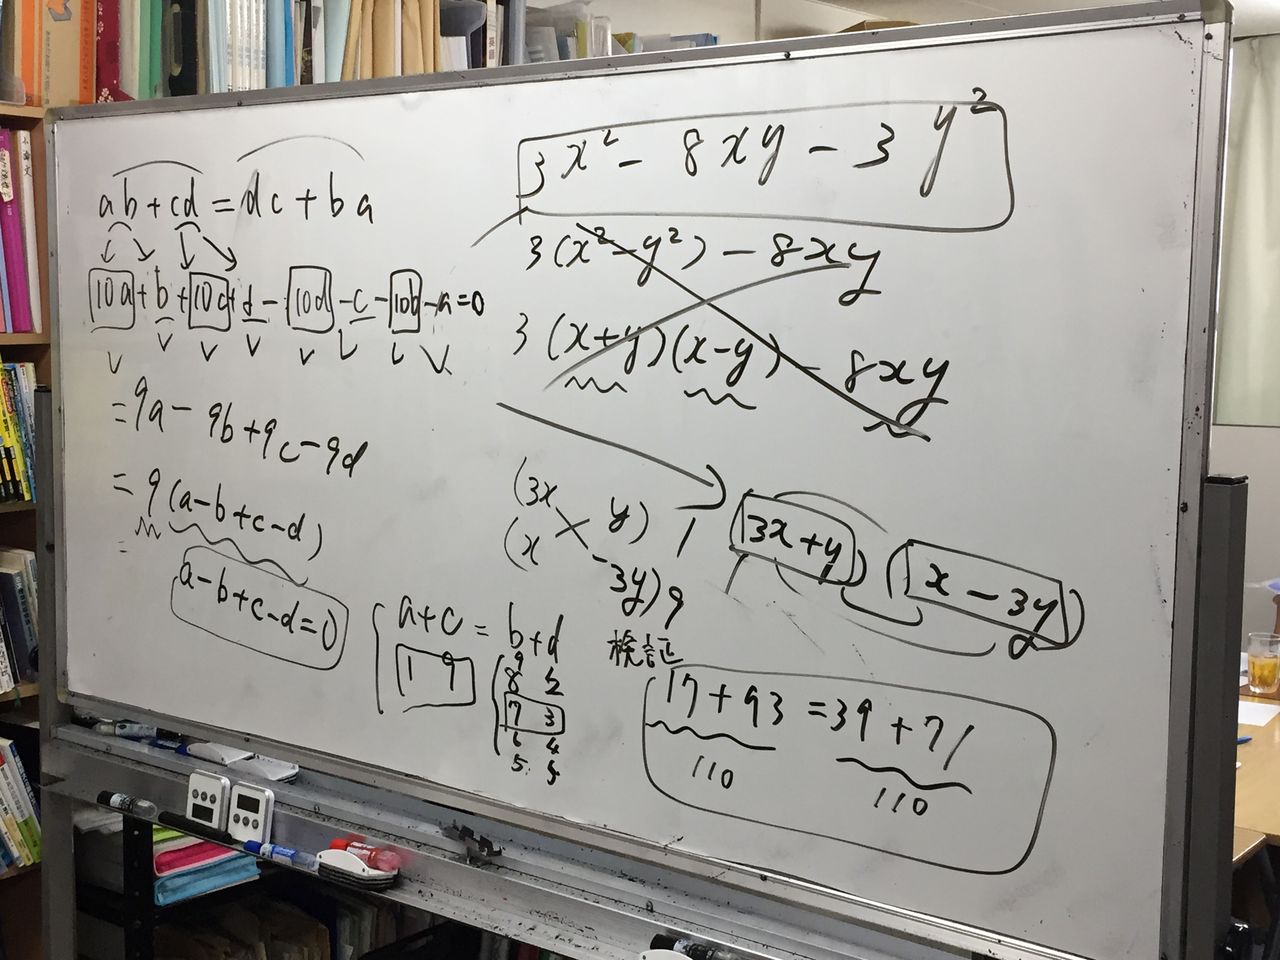 ab+cd=dc+ba
10a+b+10c+d-10d-c-10b-a=0
=9a-9b+9c-9d
=9(a-b+c-d)
=
a-b+c-d=0
a+c=b+d
1 9
9
8 2
7 3
6 4
5 5
3x²-8xy-3y²
3(x²-y²)-8xy
3(x+y)(x-y)-8xy
(3x y) 1
(x -3y) 9
(3x+y)(x-3y)
検証
17+93=39+71
110 110